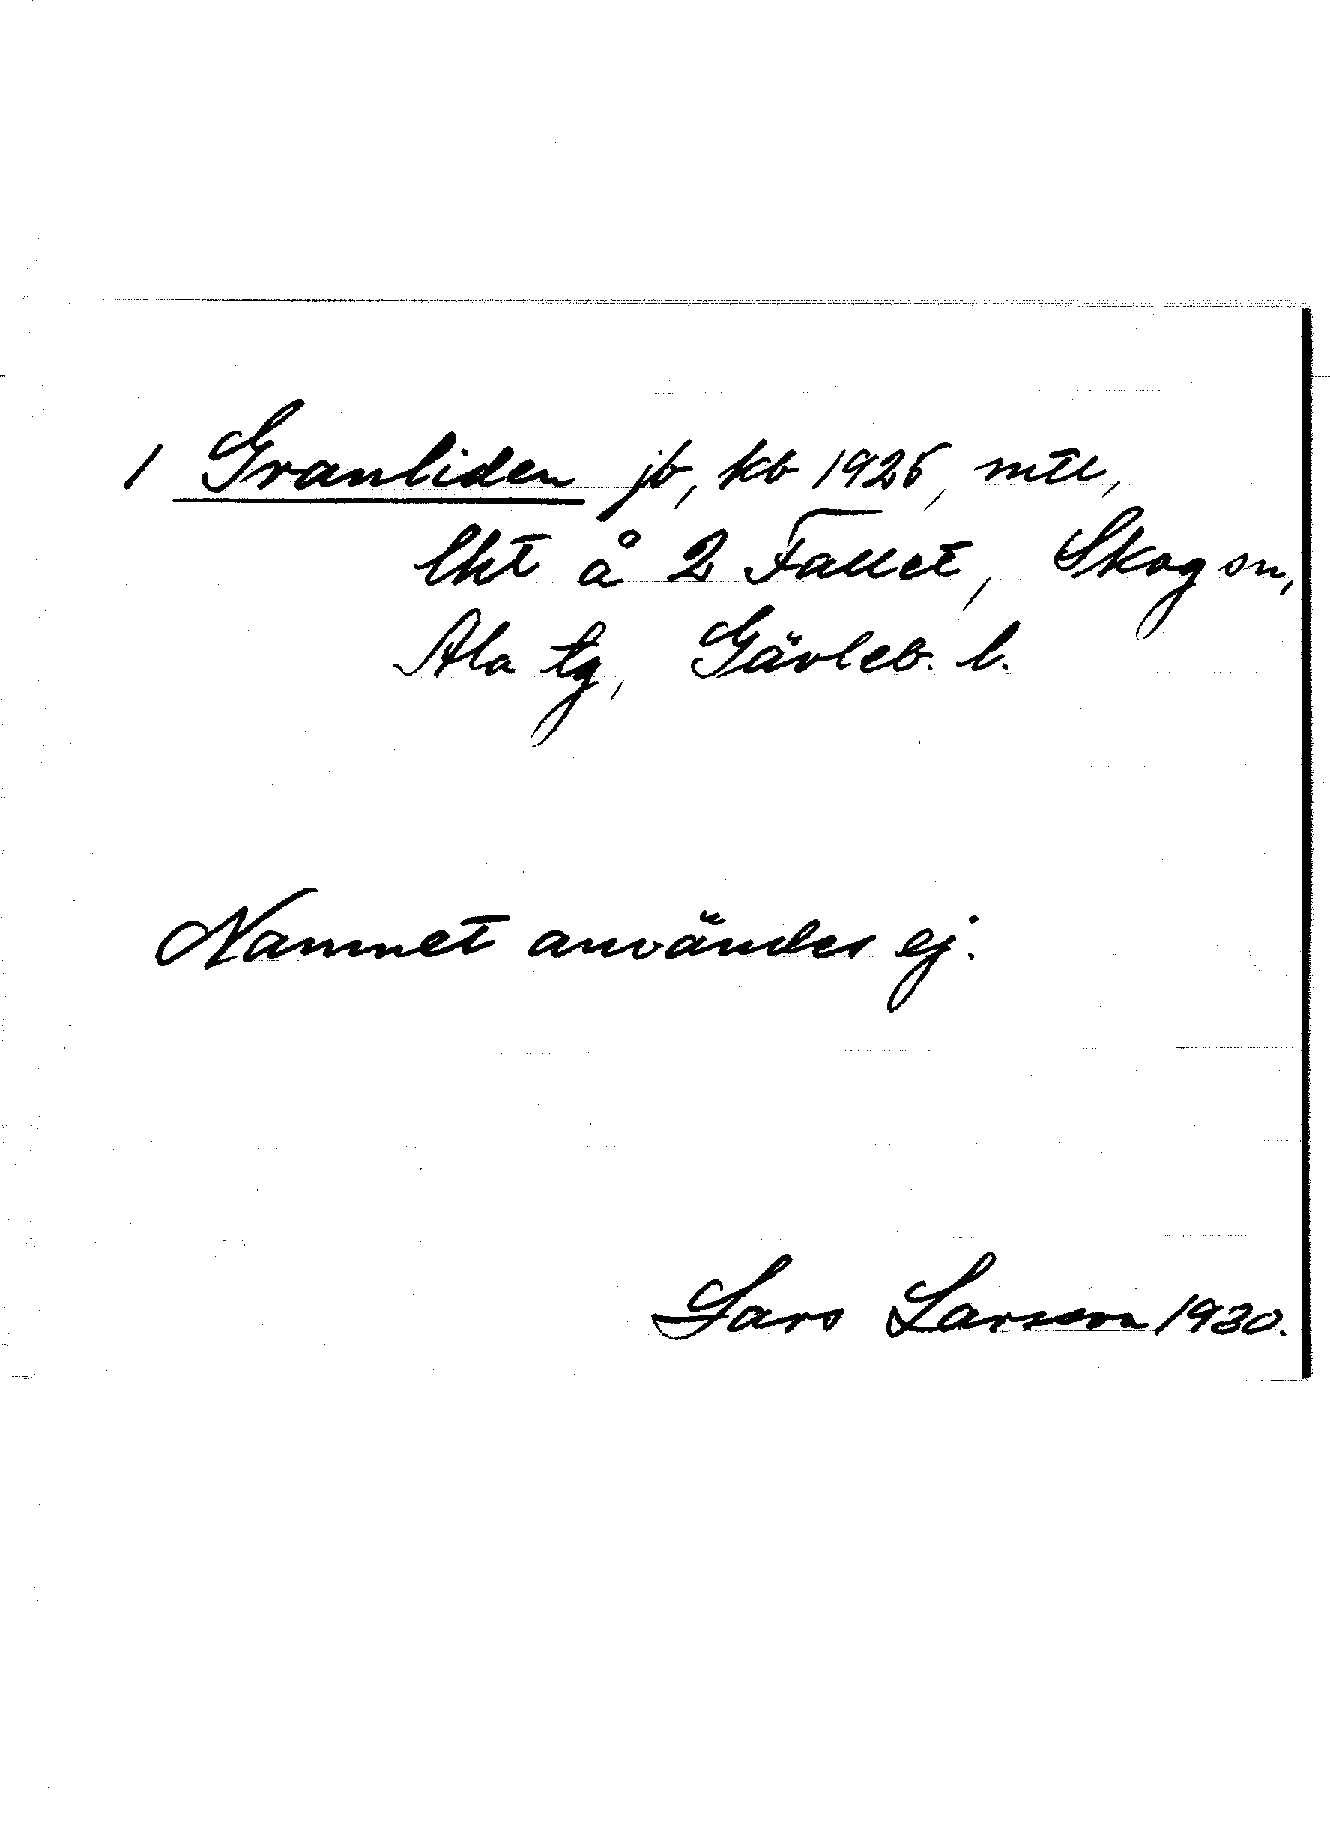 1 Granliden jb, kb 1925, mtl,
lht å 2 Fallet, Skog sn,
Ala tg, Gävleb. l.
Namnet användes ej.
Lars Larsson 1930.